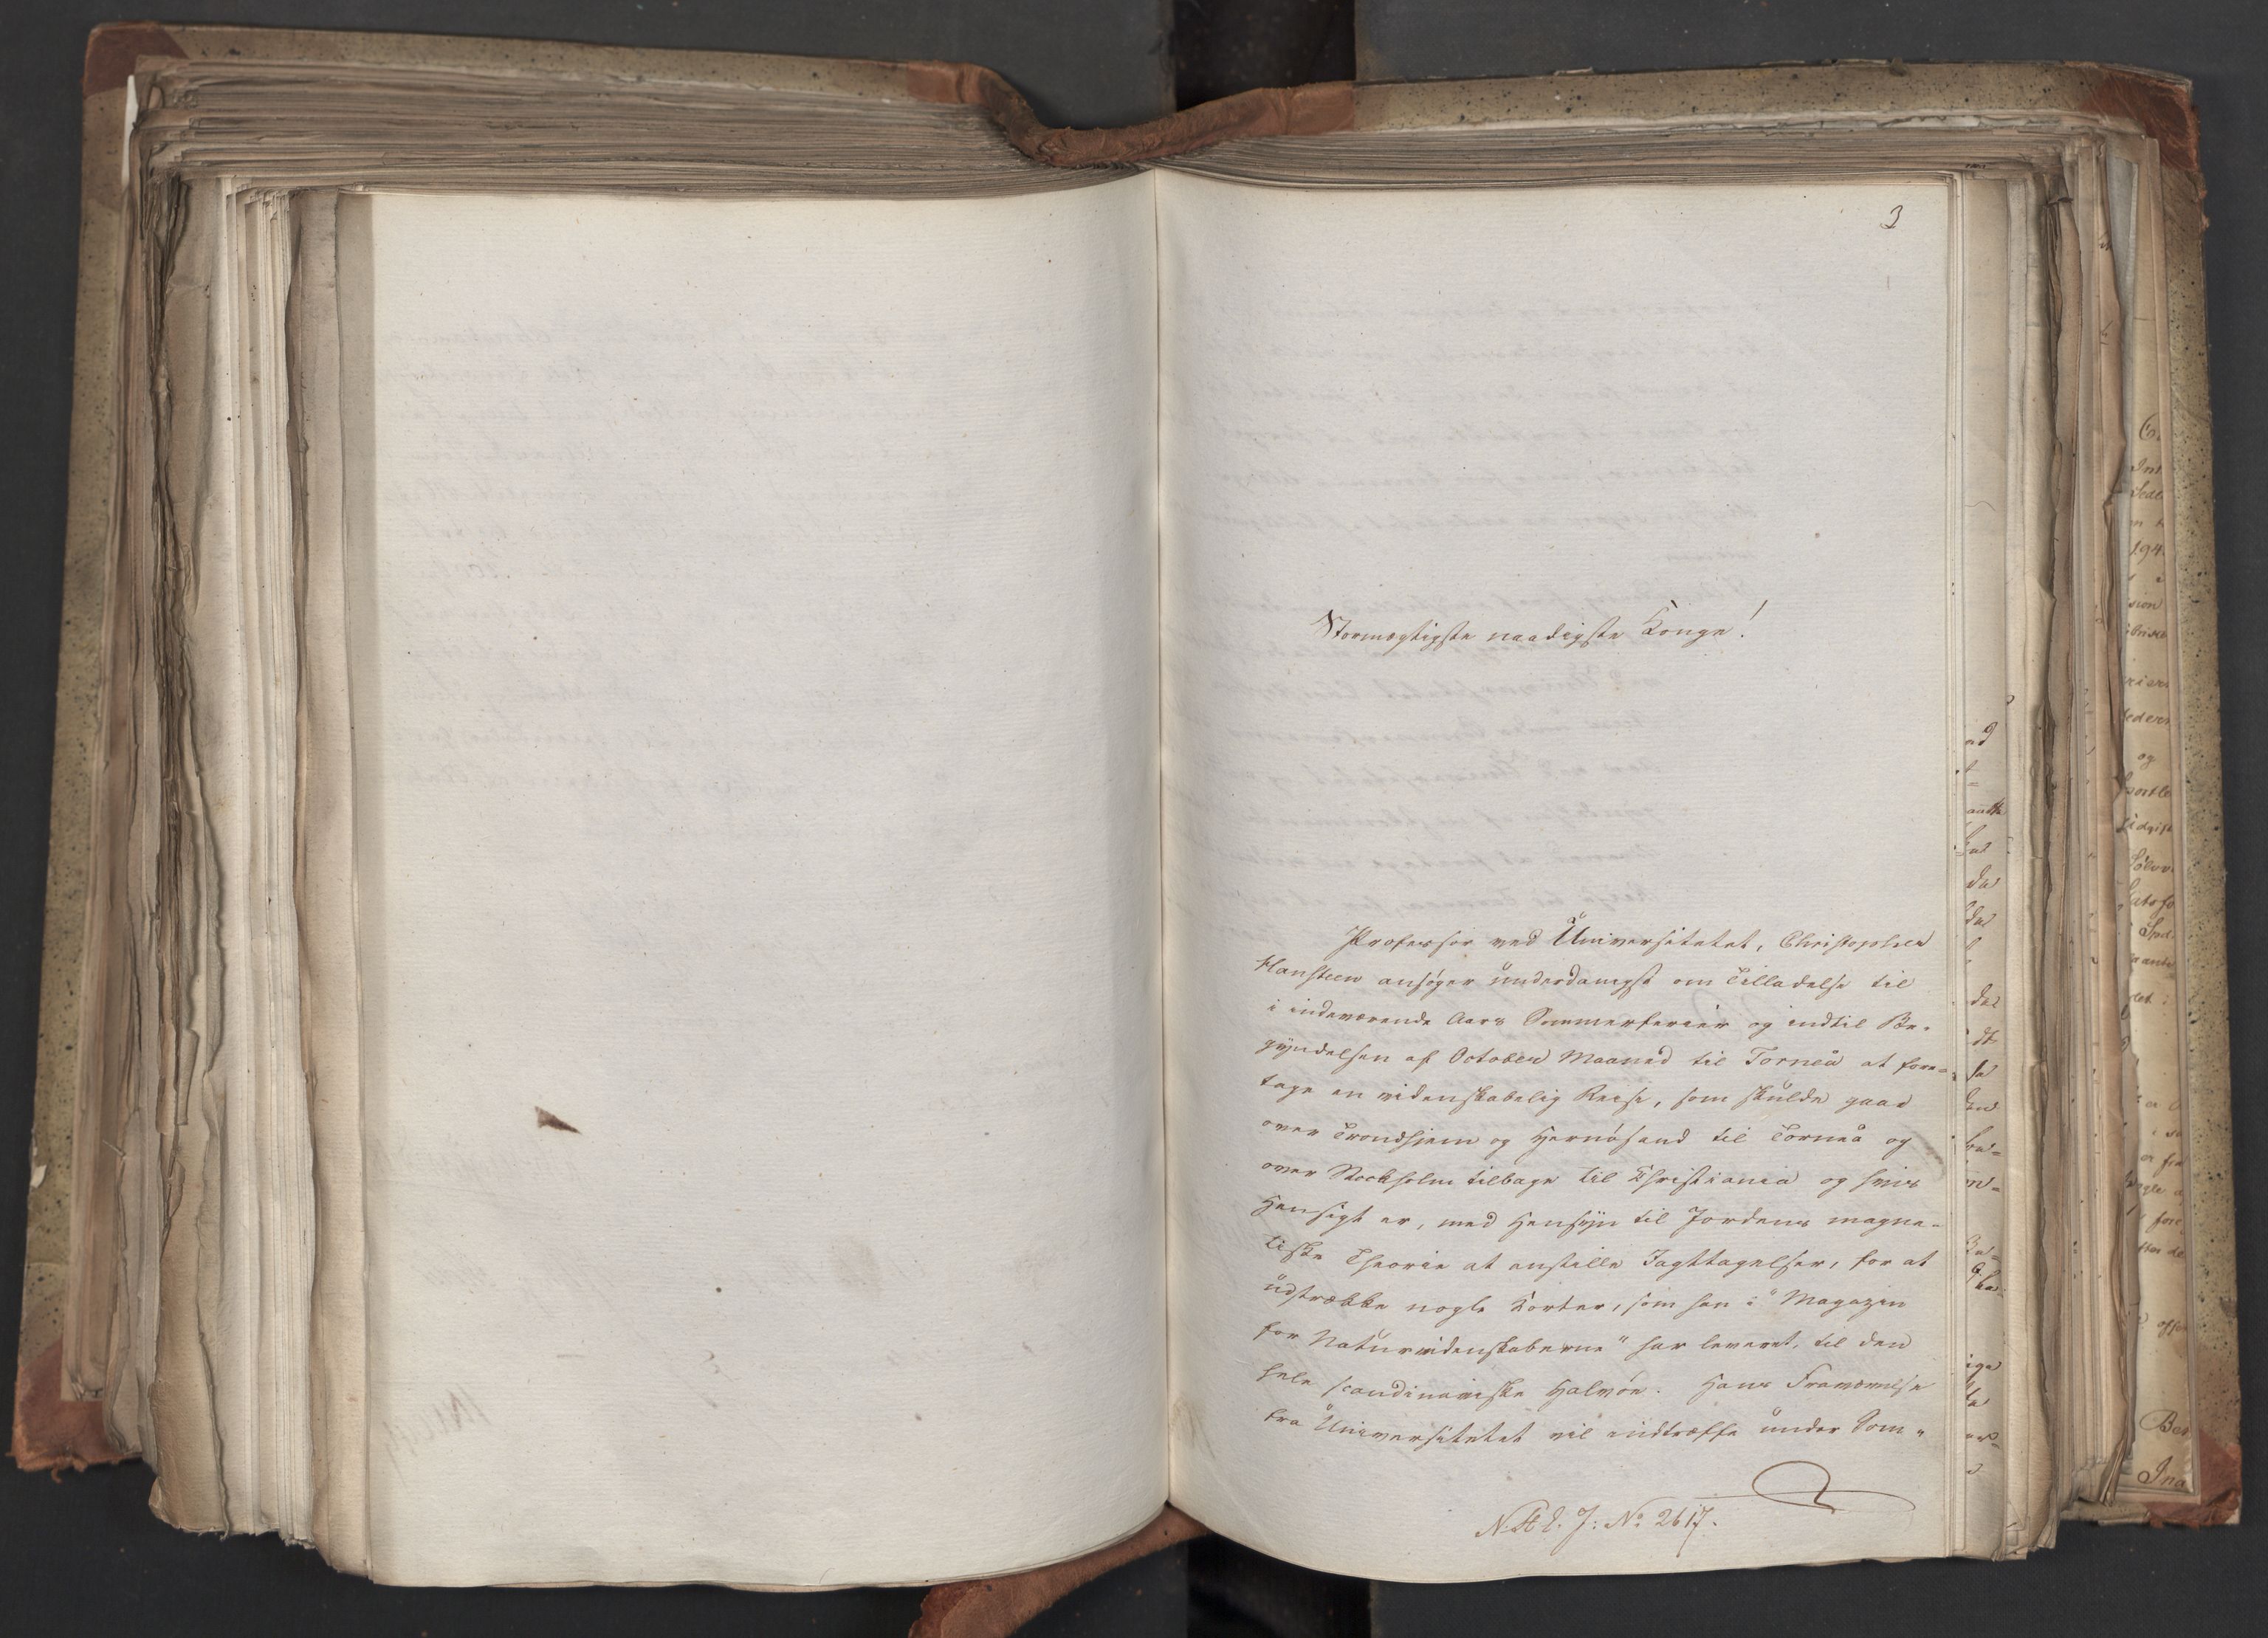 3
Stormægtigste naadigste Konge!
Professor ved Universitetet, Christopher
Hansteen ansøger underdanigst om Tilladelse til
i indeværende Aars Sommerferier og indtil Be-
gyndelsen af October Maaned til Torneå at fore-
tage en videnskabelig Reise, som skulde gaae
over Trondhjem og Hernösand til Torneå og
over Stockholm tilbage til Christiania og hvis
Hensigt er, med Hensyn til Jordens magne-
tiske Theorie at anstille Iagttagelser, for at
udstrække nogle Korter, som han i "Magazin
for Naturvidenskaberne" har leveret, til den
hele scandinaviske Halvöe. Hans Fraværelse
fra Universitetet vil indtræffe under Som-
No 2617.